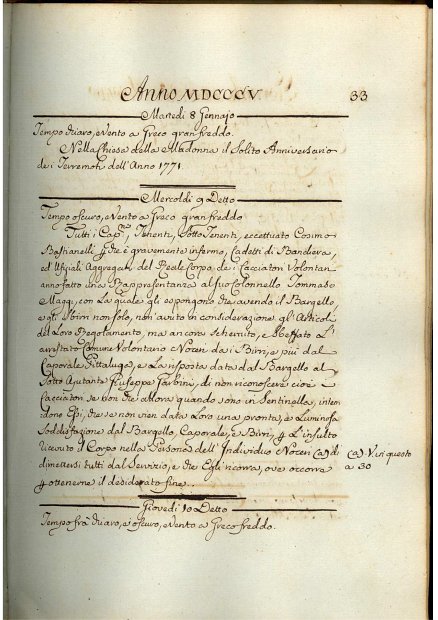 Anno MDCCCV.
33
Martedì 8 Gennajo
Tempo chiaro, e vento a Greco gran freddo.
Nella Chiesa della Madonna il Solito Anniversario
de i Terremoti dell'Anno 1771
Mercoldì 9 Detto
Tempo oscuro, e vento a Greco gran freddo
Tutti i Capⁱ, Tenenti, Sotto Tenenti, eccettuato Cosimo
Bastianelli che è gravemente infermo, Cadetti di Bandiera,
ed Ufiziali Aggregati del Reale Corpo de i Cacciatori Volontari
anno fatto una Rappresentanza al suo Colonnello Tommaso
Maggi, con la quale gli espongono che avendo il Bargello,
e gli Sbirri non solo, non avuto in considerazione gl'Articoli
del Loro Regolamento, ma ancora schernito, e sbeffato L'
arrestato Comune Volontario Noceti dai i Birri, e più dal
Caporale Pittaluga, e La risposta data dal Bargello al
Sotto Ajutante Giuseppe Garbini, di non riconoscere cioè i
Cacciatori se non che allora quando sono in Sentinella, inten-
dono Essi, che se non vien data Loro una pronta, e Luminosa
Soddisfazione dal Bargello, Caporale, e Birri, per L'insulto
ricevuto il Corpo nella Persona dell'Individuo Noceti (a) di
dimettersi tutti dal Servizio, e che Egli ricorra, ove occorra
per ottenerne il desiderato fine.
(a) Vedi questo
a 30
Giovedì 10 Detto
Tempo frà chiaro, e oscuro, e vento a Greco freddo.